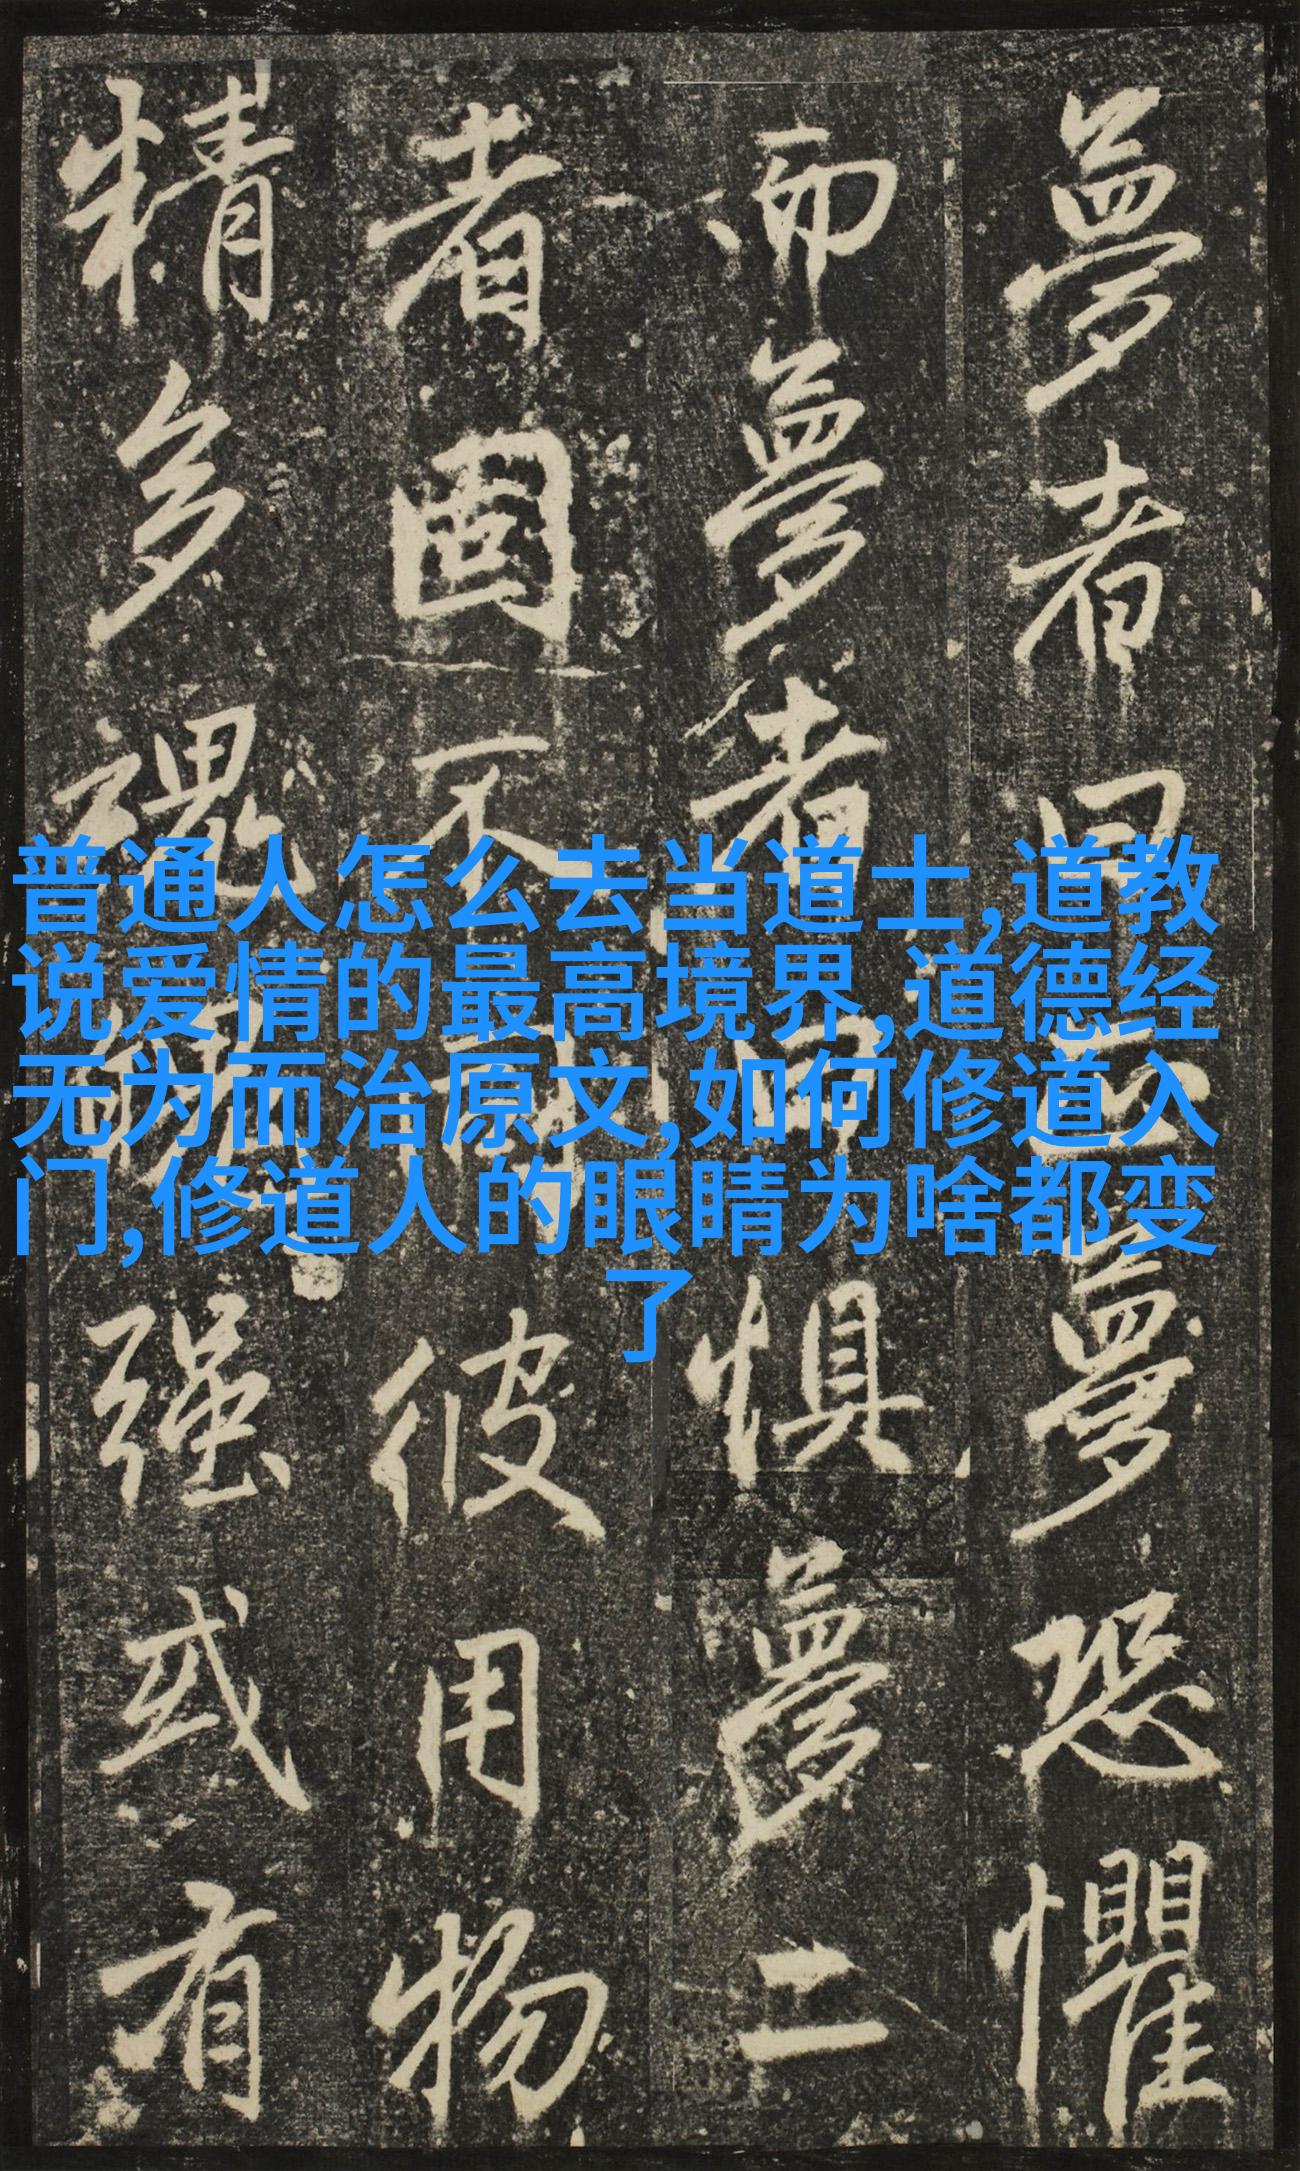 夢者曰夢恐懼
而夢者曰懼夢二
者固不彼用物
精多魂强或有
普通人怎么去当道士,道教
说爱情的最高境界,道德经
无为而治原文,如何修道入
门,修道人的眼睛为啥都变
了